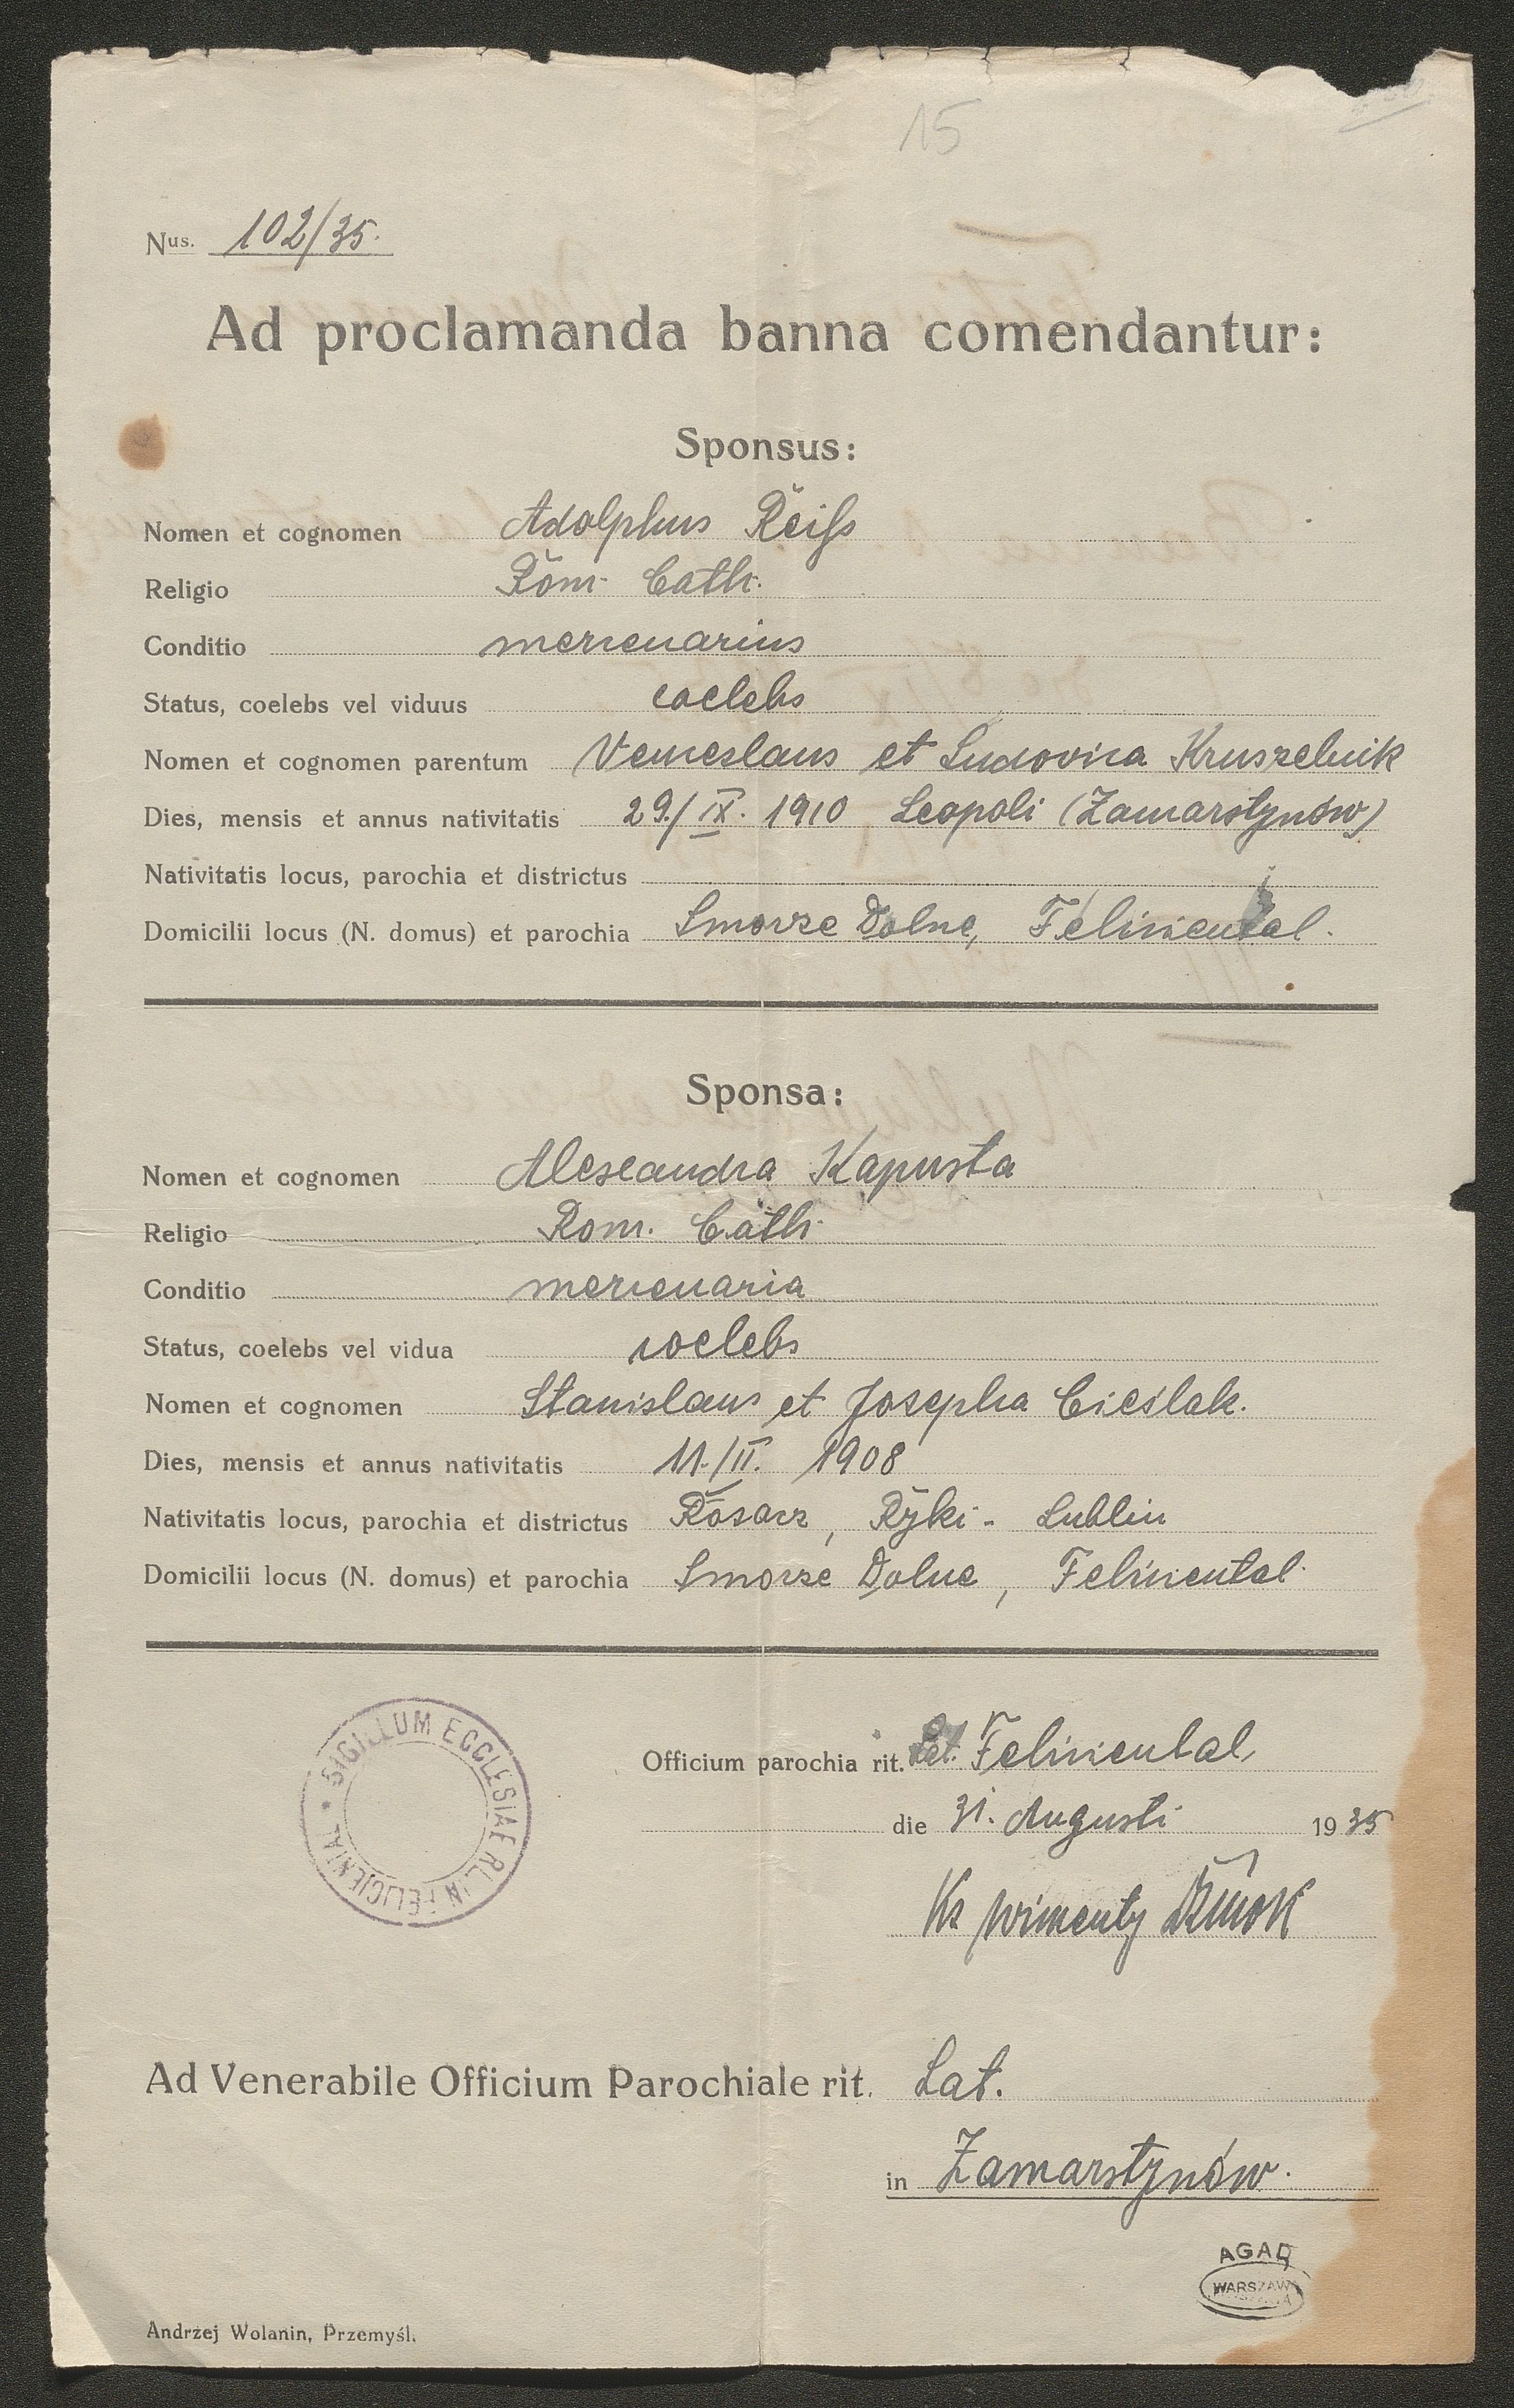 15
Nus. 102/35.
Ad proclamanda banna comendantur:
Sponsus:
Nomen et cognomen Adolphus Reiss
Religio Rom. Cath.
Conditio mercenarius
Status, coelebs vel viduus coelebs
Nomen et cognomen parentum Venceslaus et Ludovica Kruszelnik
Dies, mensis et annus nativitatis 29./IX. 1910 Leopoli (Zamarstynów)
Nativitatis locus, parochia et districtus
Domicilii locus (N. domus) et parochia Smorze Dolne, Feliciental.
Sponsa:
Nomen et cognomen Alexandra Kapusta
Religio Rom. Cath.
Conditio mercenaria
Status, coelebs vel vidua coelebs
Nomen et cognomen Stanislaus et Josepha Cieślak.
Dies, mensis et annus nativitatis 11./II. 1908
Nativitatis locus, parochia et districtus Ryki - Lublin
Domicilii locus (N. domus) et parochia Smorze Dolne, Feliciental.
SIGILLUM ECCLESIAE R.L. IN FELICIENTAL
Officium parochia rit. Lat. Feliciental,
die 31. Augusti 1935
Ks Wincenty
Ad Venerabile Officium Parochiale rit. Lat.
in Zamarstynów.
AGAD
WARSZAWA
Andrzej Wolanin, Przemyśl.